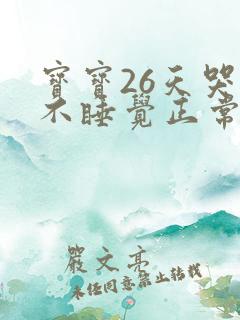 寶寶26天哭
不睡覺正常
嚴文亮
未經同意禁止轉載